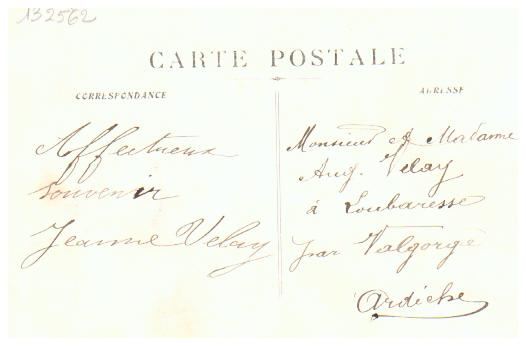 132562
CARTE POSTALE
CORRESPONDANCE
ADRESSE
Affectueux
souvenir
Jeanne Velay
Monsieur et Madame
Aug. Velay
à Loubaresse
par Valgorge
Ardèche